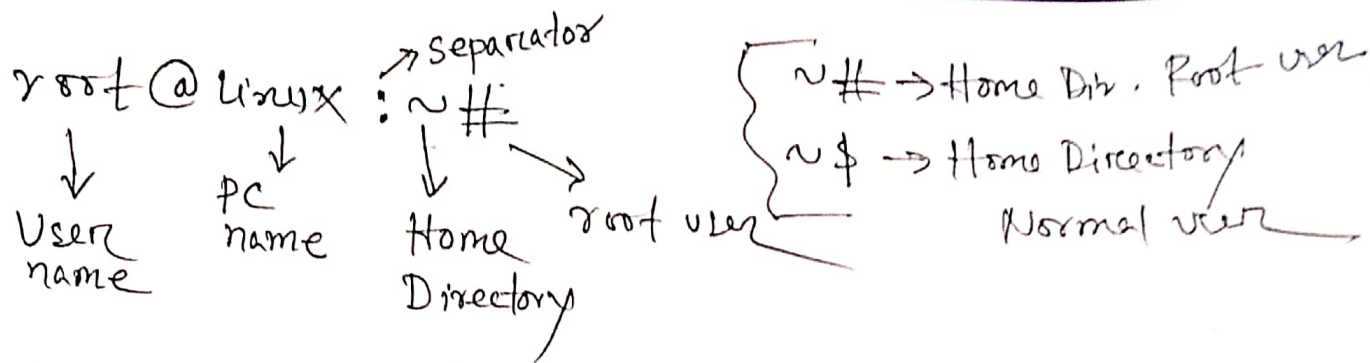 root @ linux : ~ #
→ separator
User name
PC name
Home Directory
root user
~ # → Home Dir. Root user
~ $ → Home Directory
Normal user